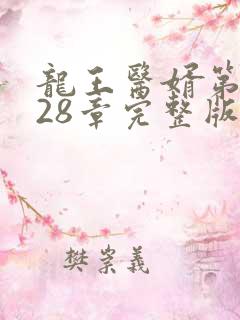 龍王醫婿第
28章完整版
樊崇義